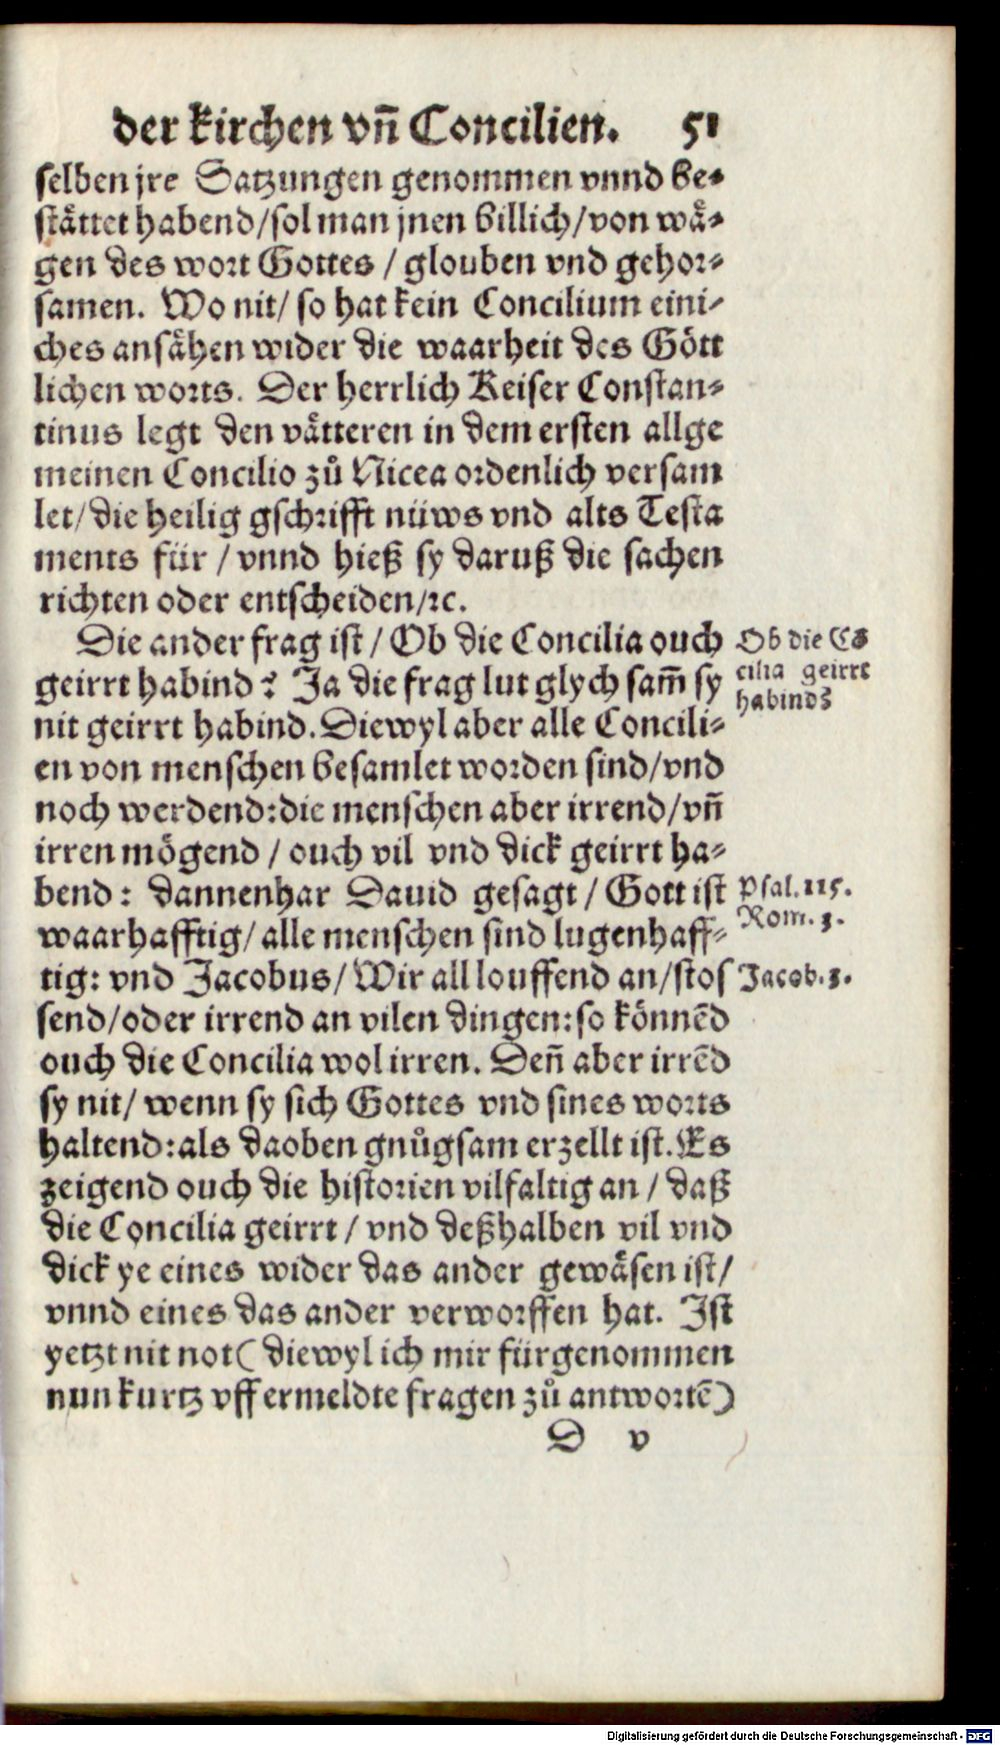 der kirchen vn̄ Concilien. 51
selben jre Satzungen genommen vnnd be-
stättet habend/sol man jnen billich/von wä-
gen des wort Gottes / glouben vnd gehor-
samen. Wo nit/ so hat kein Concilium eini-
ches ansähen wider die waarheit des Gött
lichen worts. Der herrlich Keiser Constan-
tinus legt den vätteren in dem ersten allge
meinen Concilio zů Nicea ordenlich versam
let/die heilig gschrifft nüws vnd alts Testa
ments für / vnnd hieß sy daruß die sachen
richten oder entscheiden/ꝛc.
Die ander frag ist / Ob die Concilia ouch
geirrt habind? Ja die frag lut glych sam̄ sy
nit geirrt habind. Diewyl aber alle Concili-
en von menschen besamlet worden sind/vnd
noch werdend:die menschen aber irrend/vn̄
irren mögend / ouch vil vnd dick geirrt ha-
bend: dannenhar Dauid gesagt / Gott ist
waarhafftig/ alle menschen sind lugenhaff-
tig: vnd Jacobus/ Wir all louffend an/stos
send/oder irrend an vilen dingen:so könnēd
ouch die Concilia wol irren. Den̄ aber irrēd
sy nit/ wenn sy sich Gottes vnd sines worts
haltend:als daoben gnůgsam erzellt ist. Es
zeigend ouch die historien vilfaltig an / daß
die Concilia geirrt / vnd deßhalben vil vnd
dick ye eines wider das ander gewäsen ist/
vnnd eines das ander verworffen hat. Ist
yetzt nit not( diewyl ich mir fürgenommen
nun kurtz vff ermeldte fragen zů antwortē)
D v
Ob die Cō
cilia geirrt
habind?
Psal. 115.
Rom. 3.
Jacob. 3.
Digitalisierung gefördert durch die Deutsche Forschungsgemeinschaft - DFG